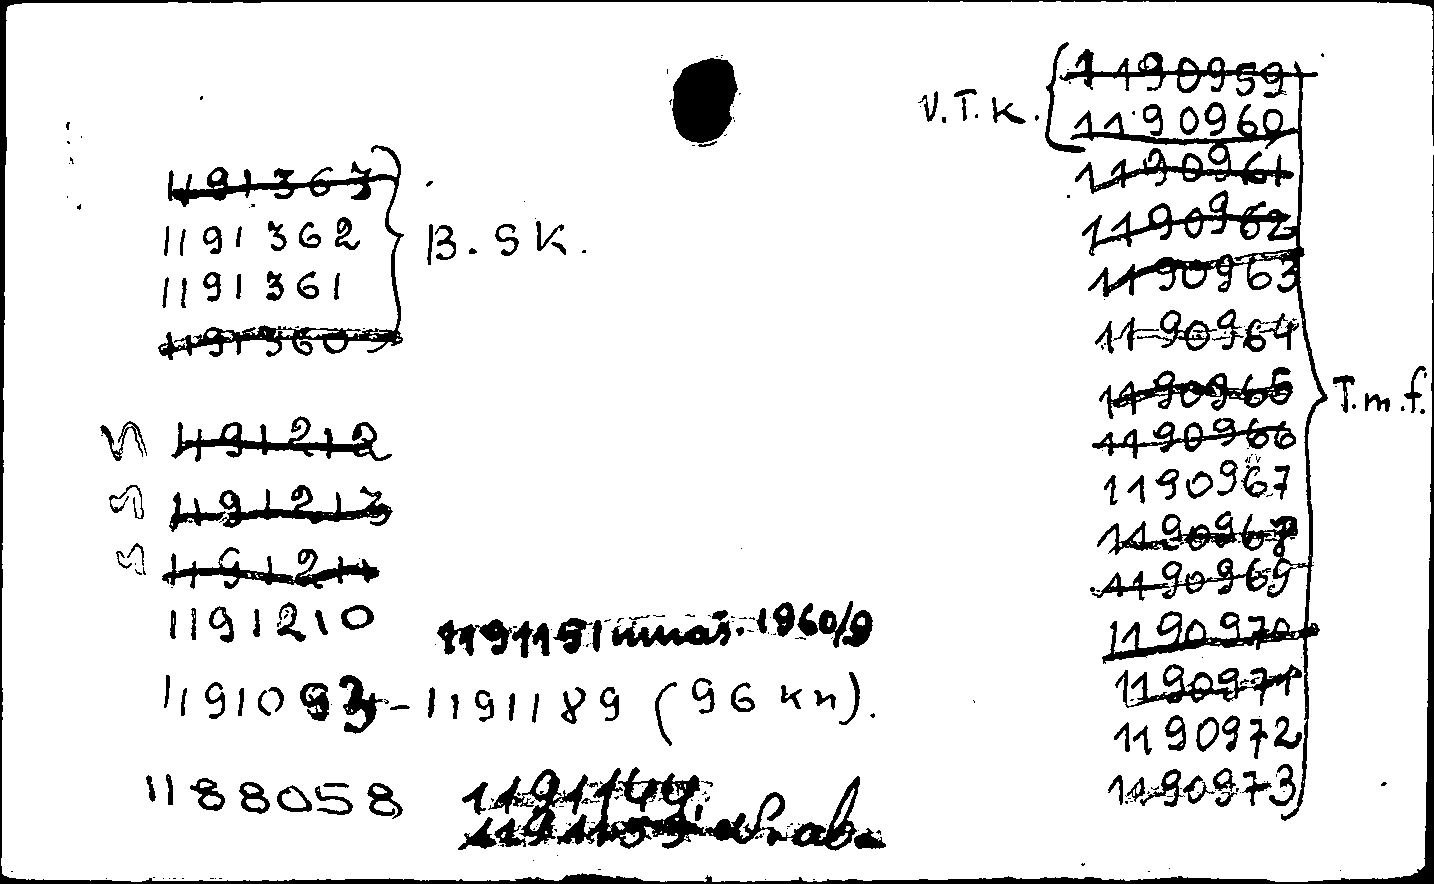 1191363
1191362
1191361
1191360
B.SK.
1191212
1191213
1191211
1191210
1191151 1960/9
119109 - 1191189 (96 kn).
1188058
1191144,
V.T.K.
1190959
1190960
1190961
1190962
1190963
1190964
1190965
1190966
1190967
1190968
1190969
1190970
1190971
1190972
1190973
T.m.f.